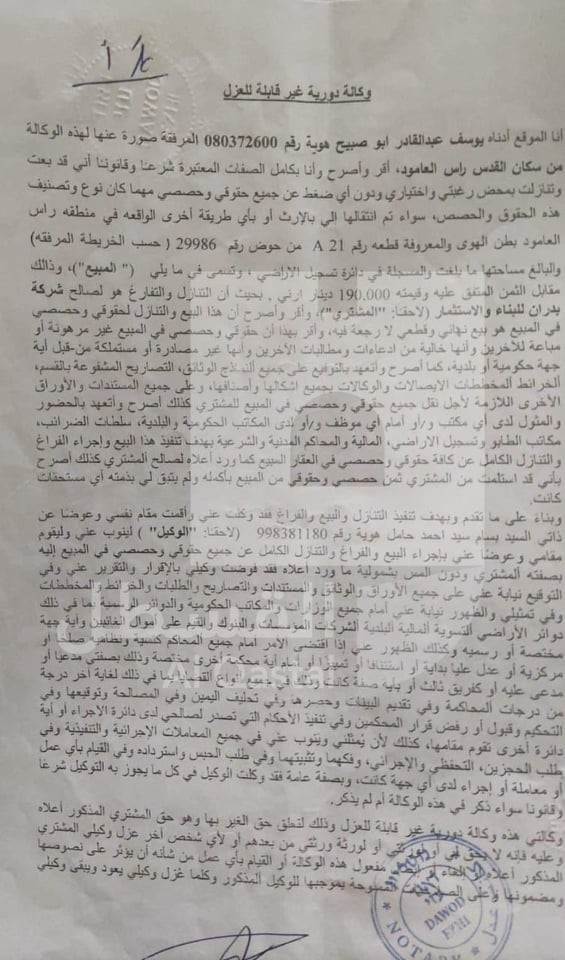 أ/ع
وكالة دورية غير قابلة للعزل
أنا الموقع أدناه يوسف عبدالقادر ابو صبيح هوية رقم 080372600 المرفقة صورة عنها لهذه الوكالة
من سكان القدس راس العامود، أقر وأصرح وأنا بكامل الصفات المعتبرة شرعا وقانونا أني قد بعت
وتنازلت بمحض رغبتي واختياري ودون أي ضغط عن جميع حقوقي وحصصي مهما كان نوع وتصنيف
هذه الحقوق والحصص، سواء تم انتقالها الي بالإرث أو بأي طريقة أخرى الواقعه في منطقه راس
العامود بطن الهوى والمعروفة قطعه رقم 21 A من حوض رقم 29986 ( حسب الخريطة المرفقه)
والبالغ مساحتها ما بلغت والمسجلة في دائرة تسجيل الاراضي ، وتسمى في ما يلي (" المبيع")، وذالك
مقابل الثمن المتفق عليه وقيمته 190.000 دينار اردني , بحيث أن التنازل والتفارغ هو لصالح شركة
بدران للبناء والاستثمار (لاحقا: "المشتري")، وأقر وأصرح أن هذا البيع والتنازل لحقوقي وحصصي
في المبيع هو بيع نهائي وقطعي لا رجعة فيه، وأقر بهذا أن حقوقي وحصصي في المبيع غير مرهونة أو
مباعة للآخرين وأنها خالية من ادعاءات ومطالبات الآخرين وأنها غير مصادرة أو مستملكة من قبل أية
جهة حكومية أو بلدية، كما أصرح وأتعهد بالتوقيع على جميع النماذج الوثائق، التصاريح المشفوعة بالقسم،
الخرائط المخططات الايصالات والوكالات بجميع اشكالها وأصنافها، وعلى جميع المستندات والأوراق
الأخرى اللازمة لأجل نقل جميع حقوقي وحصصي في المبيع للمشتري كذلك أصرح وأتعهد بالحضور
والمثول لدى أي مكتب و/أو أمام أي موظف و/أو لدى المكاتب الحكومية والبلدية، سلطات الضرائب،
مكاتب الطابو وتسجيل الاراضي، المالية والمحاكم المدنية والشرعية بهدف تنفيذ هذا البيع وإجراء الفراغ
والتنازل الكامل عن كافة حقوقي وحصصي في العقار المبيع كما ورد أعلاه لصالح المشتري كذلك أصرح
بأني قد استلمت من المشتري ثمن حصصي وحقوقي من المبيع بأكمله ولم يتبق لي بذمته أي مستحقات
كانت.
وبناءً على ما تقدم وبهدف تنفيذ التنازل والبيع والفراغ فقد وكلت عني وأقمت مقام نفسي وعوضا عن
ذاتي السيد بسام سيد احمد حامل هوية رقم 998381180 (لاحقا: "الوكيل" ) لينوب عني وليقوم
مقامي وعوضا عني بإجراء البيع والفراغ والتنازل الكامل عن جميع حقوقي وحصصي في المبيع إليه
بصفته المشتري ودون المس بشمولية ما ورد أعلاه فقد فوضت وكيلي بالإقرار والتقرير عني وفي
التوقيع نيابة عني على جميع الأوراق والوثائق والمستندات والتصاريح والطلبات والخرائط والمخططات
وفي تمثيلي والظهور نيابة عني أمام جميع الوزارات والمكاتب الحكومية والدوائر الرسمية بما في ذلك
دوائر الأراضي التسوية المالية البلدية الشركات المؤسسات والبنوك والقيم على أموال الغائبين وأية جهة
مختصة أو رسميه وكذلك الظهور عني إذا اقتضى الامر امام جميع المحاكم كنسية ونظاميه صلحا أو
مركزية أو عدل عليا بداية أو استئنافا أو تمييزا أو أمام أية محكمة أخرى مختصة وذلك بصفتي مدعيا أو
مدعى عليه أو كفريق ثالث أو بايه صفة كانت وذلك في جميع أنواع القضايا بما في ذلك لغاية آخر درجة
من درجات المحاكمة وفي تقديم البينات وحصرها وفي تحليف اليمين وفي المصالحة وتوقيعها وفي
التحكيم وقبول أو رفض قرار المحكمين وفي تنفيذ الأحكام التي تصدر لصالحي لدى دائرة الاجراء أو أية
دائرة أخرى تقوم مقامها، كذلك لأن يمثلني وينوب عني في جميع المعاملات الإجرائية والتنفيذية وفي
طلب الحجزين، التحفظي والإجرائي، وفكهما وتثبيتهما وفي طلب الحبس واسترداده وفي القيام بأي عمل
أو معاملة أو إجراء لدى أي جهة كانت، وبصفة عامة فقد وكلت الوكيل في كل ما يجوز به التوكيل شرعا
وقانونا سواء ذكر في هذه الوكالة أم لم يذكر.
وكالتي هذه وكالة دورية غير قابلة للعزل وذلك لتعلق حق الغير بها وهو حق المشتري المذكور أعلاه
وعليه فإنه لا يحق لي أو لورثتي أو لورثة ورثتي من بعدهم أو لأي شخص آخر عزل وكيلي المشتري
المذكور أعلاه أو إلغاء أو إبطال مفعول هذه الوكالة أو القيام بأي عمل من شأنه أن يؤثر على نصوصها
ومضمونها وعلى الصلاحيات الممنوحة بموجبها للوكيل المذكور وكلما عزل وكيلي يعود ويبقى وكيلي
DAWOD
NOTARY